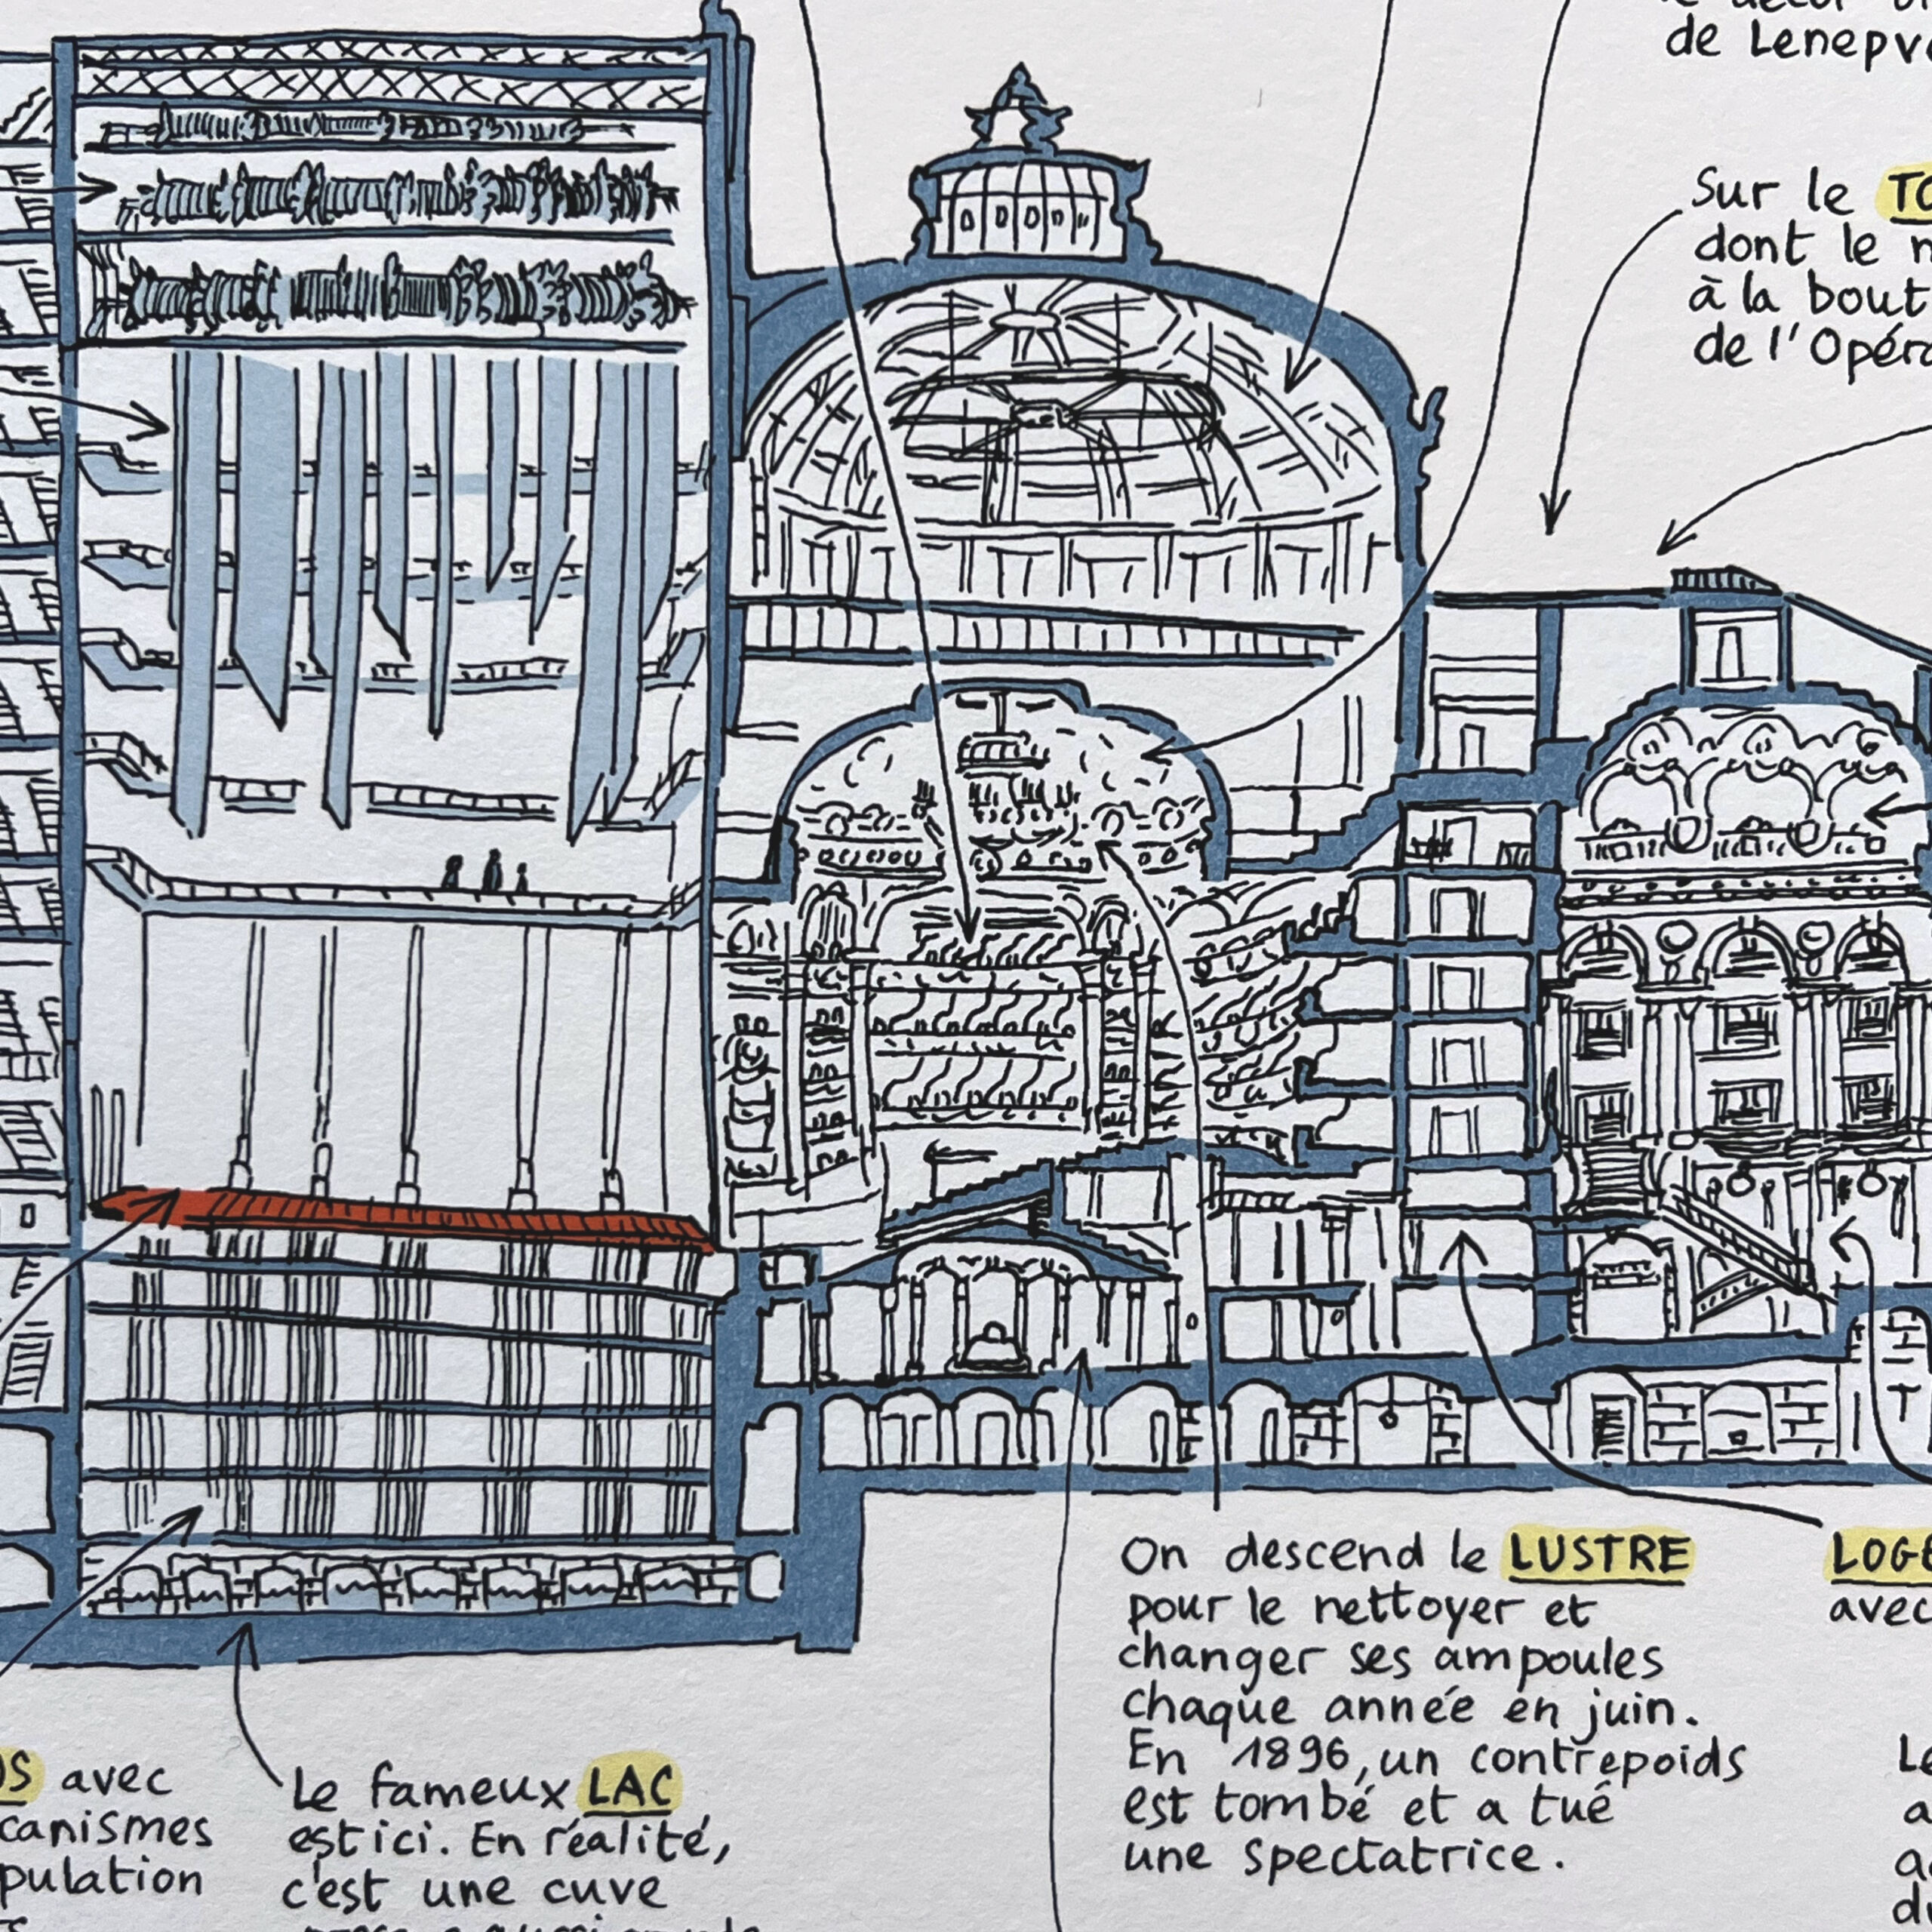 de Lenepv
Sur le TO
dont le n
à la bout
de l'Opéra
On descend le LUSTRE
pour le nettoyer et
changer ses ampoules
chaque année en juin.
En 1896, un contrepoids
est tombé et a tué
une spectatrice.
LOGE
avec
OS avec
canismes
pulation
Le fameux LAC
est ici. En réalité,
c'est une cuve
Le
a
ac
du